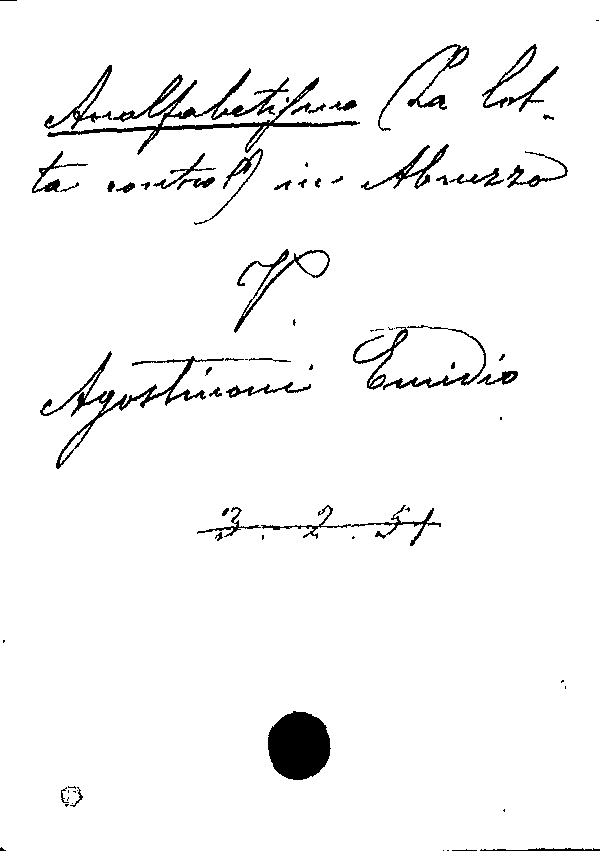 Analfabetismo (La lot-
ta contro l') in Abruzzo
V.
Agostinoni Emidio
3. 2. 51